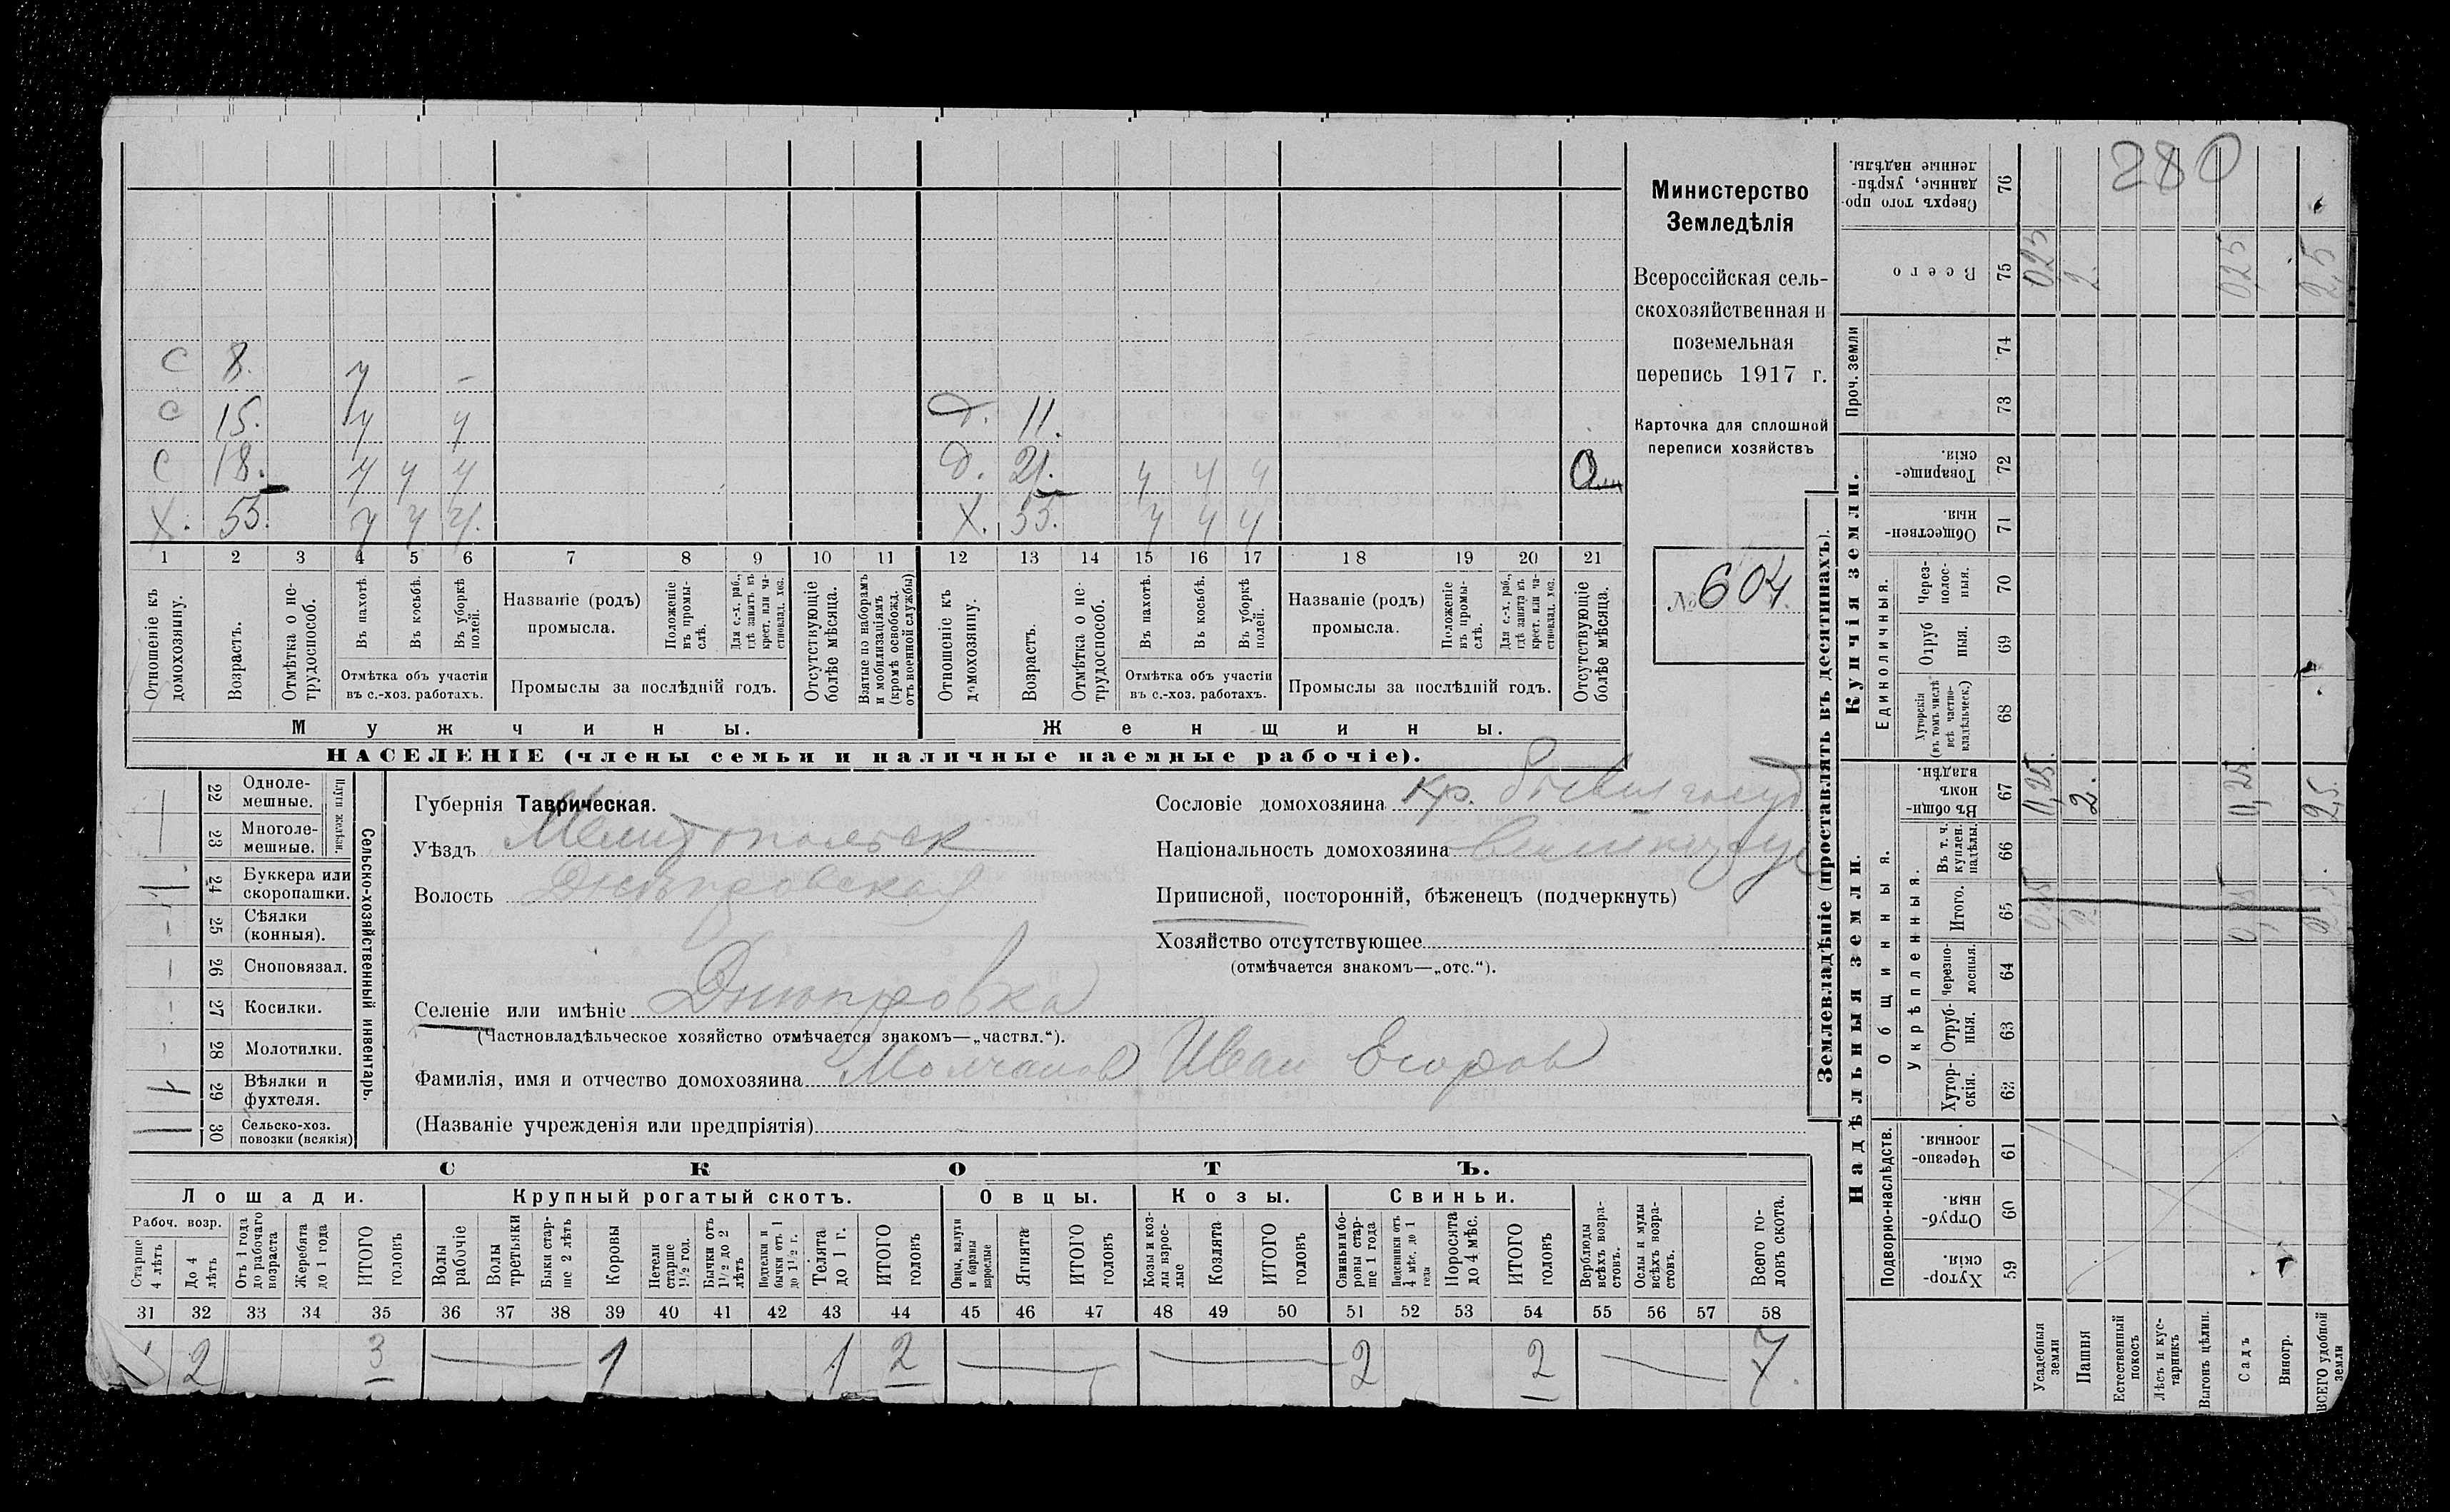 280
Министерство
Земледѣлія
Всероссійская сель-
скохозяйственная и
поземельная
перепись 1917 г.
Карточка для сплошной
переписи хозяйствъ
№ 604.
С 8. у –
С 15. у у
Д. 11.
С 18. у у у
Д. 21. у у у
Х. 55. у у у.
Х. 55. у у у
1 2 3 4 5 6 7 8 9 10 11 12 13 14 15 16 17 18 19 20 21
Отношеніе къ домохозяину.
Возрастъ.
Отмѣтка о не-трудоспособ.
Въ пахотѣ.
Въ косьбѣ.
Въ уборкѣ полей.
Отмѣтка объ участіи
въ с.-хоз. работахъ.
Названіе (родъ)
промысла.
Положеніе въ промы-слѣ.
Для с.-х. раб., гдѣ занятъ въ крест. или ча-стновлад. хоз.
Промыслы за послѣдній годъ.
Отсутствующіе болѣе мѣсяца.
Взятые по наборамъ и мобилизаціямъ (кромѣ освобожд. отъ военной службы)
Отношеніе къ домохозяину.
Возрастъ.
Отмѣтка о не-трудоспособ.
Въ пахотѣ.
Въ косьбѣ.
Въ уборкѣ полей.
Отмѣтка объ участіи
въ с.-хоз. работахъ.
Названіе (родъ)
промысла.
Положеніе въ промы-слѣ.
Для с.-х. раб., гдѣ занята въ крест. или ча-стновлад. хоз.
Промыслы за послѣдній годъ.
Отсутствующіе болѣе мѣсяца.
Мужчины.
Женщины.
НАСЕЛЕНІЕ (члены семьи и наличные наемные рабочіе).
Сельско-хозяйственный инвентарь.
22 Одноле-мешные.
23 Многоле-мешные.
24 Буккера или скоропашки.
25 Сѣялки (конныя).
26 Сноповязал.
27 Косилки.
28 Молотилки.
29 Вѣялки и фухтеля.
30 Сельско-хоз. повозки (всякія)
Губернія Таврическая.
Уѣздъ Мелитопольск
Волость Днѣпровская
Селеніе или имѣніе Днѣпровка
(Частновладѣльческое хозяйство отмѣчается знакомъ—„частвл.“).
Фамилія, имя и отчество домохозяина Молчанов Иван Егоров
(Названіе учрежденія или предпріятія)
Сословіе домохозяина кр.
Національность домохозяина
Приписной, посторонній, бѣженецъ (подчеркнуть)
Хозяйство отсутствующее
(отмѣчается знакомъ—„отс.“).
СКОТЪ.
Лошади.
Крупный рогатый скотъ.
Овцы.
Козы.
Свиньи.
Рабоч. возр.
Старше 4 лѣтъ
До 4 лѣтъ
Отъ 1 года до рабочаго возраста
Жеребята до 1 года
ИТОГО головъ
Волы рабочіе
Волы третьяки
Быки стар-ше 2 лѣтъ
Коровы
Нетели старше 1½ год.
Бычки отъ 1½ до 2 лѣтъ
Подтелки и бычки отъ 1 до 1½ г.
Телята до 1 г.
ИТОГО головъ
Овцы, валухи и бараны взрослые
Ягнята
ИТОГО головъ
Козы и коз-лы взрос-лые
Козлята
ИТОГО головъ
Свиньи и бо-ровы стар-ше 1 года
Подсвинки отъ 4 мѣс. до 1 года
Поросята до 4 мѣс.
ИТОГО головъ
Верблюды всѣхъ возра-стовъ.
Ослы и мулы всѣхъ возра-стовъ.
Всего го-ловъ скота.
31 32 33 34 35 36 37 38 39 40 41 42 43 44 45 46 47 48 49 50 51 52 53 54 55 56 57 58
1 2 3 1 1 2 2 2 7.
Землевладѣніе (проставлять въ десятинахъ).
Купчія земли.
Надѣльныя земли.
Проч. земли
Единоличныя.
Общинныя.
Укрѣпленныя.
Подворно-наслѣдств.
76 Сверхъ того про-данные, укрѣп-ленные надѣлы.
75 Всего
74
73
72 Товарище-скія.
71 Обществен-ныя.
70 Через-полос-ныя.
69 Отруб ныя.
68 Хуторскія (въ томъ числѣ всѣ частно-владѣльческ.)
67 Въ общи-номъ владѣн.
66 Въ т. ч. куплен. надѣлы.
65 Итого.
64 Черезпо-лосныя.
63 Отруб-ныя.
62 Хутор-скія.
61 Черезпо-лосныя.
60 Отруб-ныя.
59 Хутор-скія.
Усадебныя земли
Пашня
Естественный покосъ
Лѣсъ и кус-тарникъ
Выгонъ цѣлин.
Садъ
Виногр.
ВСЕГО удобной земли
025 2. 025 2,5
0,25. 2. 0,25. 2,5.